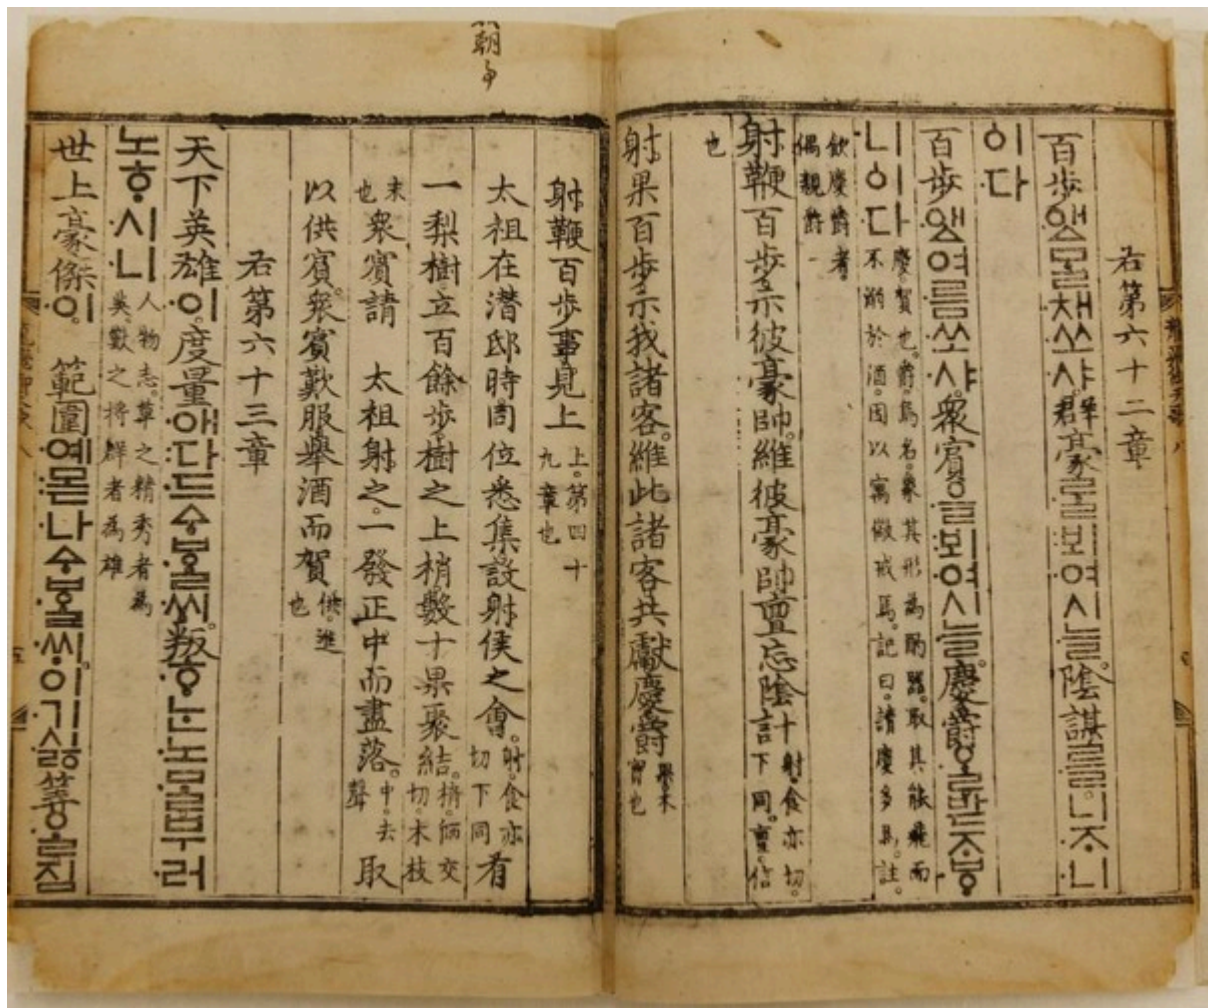 右第六十二章
百步앳ᄆᆞᆯ채쏘샤群豪ᄅᆞᆯ뵈여시ᄂᆞᆯ。陰謀ᄅᆞᆯ니ᄌᆞ니
이다
百步앳여름쏘샤。衆賓ᄋᆞᆯ뵈여시ᄂᆞᆯ。慶爵ᄋᆞᆯ받ᄌᆞᄫᆞ
니ᅌᅵ다
慶賀也。爵。鳥名。象其形為酌器。取其能飛而
不溺於酒。因以寓儆戒焉。記曰。請慶多馬。註。
飮慶爵者。
偶親爵
也
射鞭百步示彼豪帥。維彼豪帥亶忘陰計
射。食亦切。
下同。亶。信
射果百步示我諸客。維此諸客共獻慶爵
射鞭百步事見上
上。第四十
九章也
太祖在潛邸時同位悉集設射侯之會。
射。食亦
切下同
有
一梨樹立百餘步樹之上梢數十果聚結。
梢。師交
切。木枝
末
也
衆賓請 太祖射之。一發正中而盡落。
中。去
聲
取
以供賓。衆賓歎服舉酒而賀
供。進
也
右第六十三章
天下英雄이。度量애다드ᅀᆞᄫᆞᆯᄊᆡ。叛ᄒᆞᄂᆞᆫ노ᄆᆞᆯ부러
노ᄒᆞ시니
人物志。草之精秀者為
英。獸之將群者為雄
世上豪傑이。範圍예몯나ᅀᆞᄫᆞᆯᄊᆡ。이기싫算ᄋᆞᆯ짐